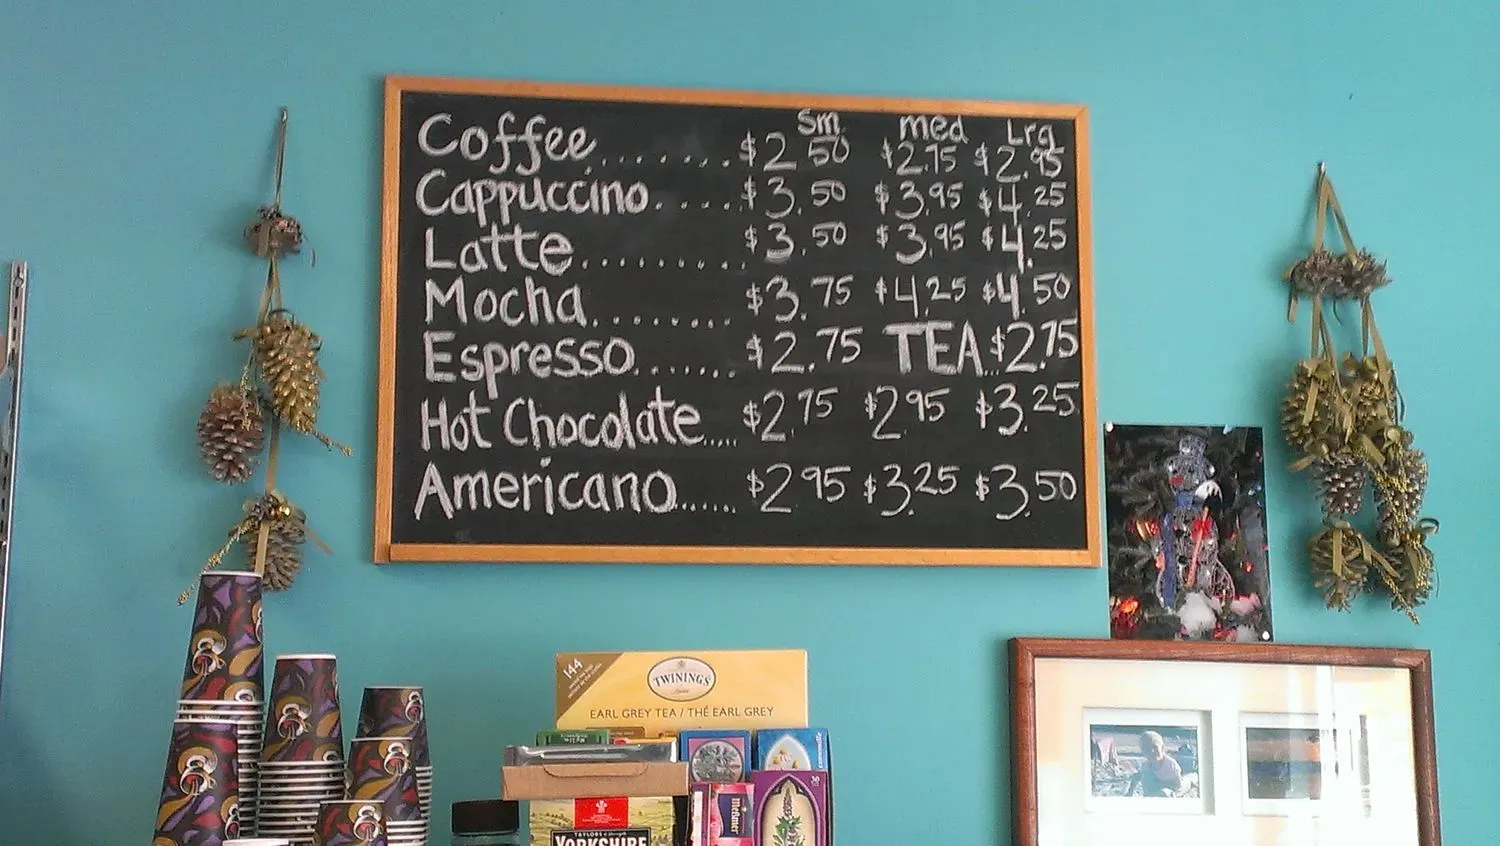 Sm med Lrg
Coffee....... $2 50 $2.75 $2.95
Cappuccino..... $3.50 $3.95 $4.25
Latte......... $3.50 $3.95 $4.25
Mocha........ $3.75 $4.25 $4.50
Espresso....... $2.75 TEA..$2.75
Hot Chocolate.... $2.75 $2.95 $3.25
Americano...... $2.95 $3.25 $3.50
144
TWININGS
EARL GREY TEA / THÉ EARL GREY
TAYLORS
YORKSHIRE
Meßmer
30